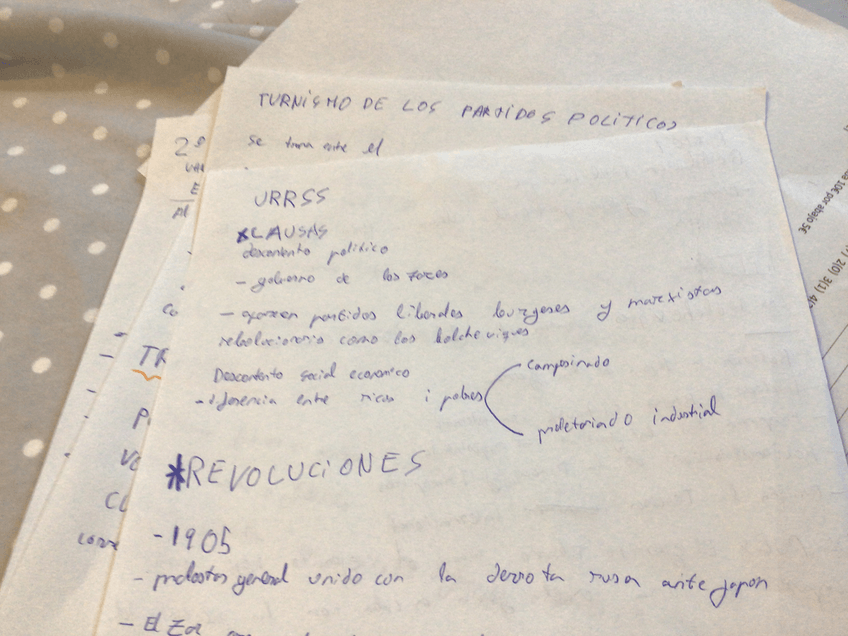 TURNiSMO DE LOS PARTIDOS POLiTiCOS
Se trma ente el
2º
E
Al
URRSS
*CAUSAS
descontento politico
- gobierno de los zares
- aparecen partidos liberales burgeses y marxistas
rebolucionerio como los bolcheviques
Descontento social economico
- diferencia entre ricos i pobres
campesinado
proletariado industrial
TR
*REVOLUCiONES
- 1905
- protestas general unido con la derrota rusa ante japon
- El Zar
a 10€ por abajo 5€
2(0) 3(1)